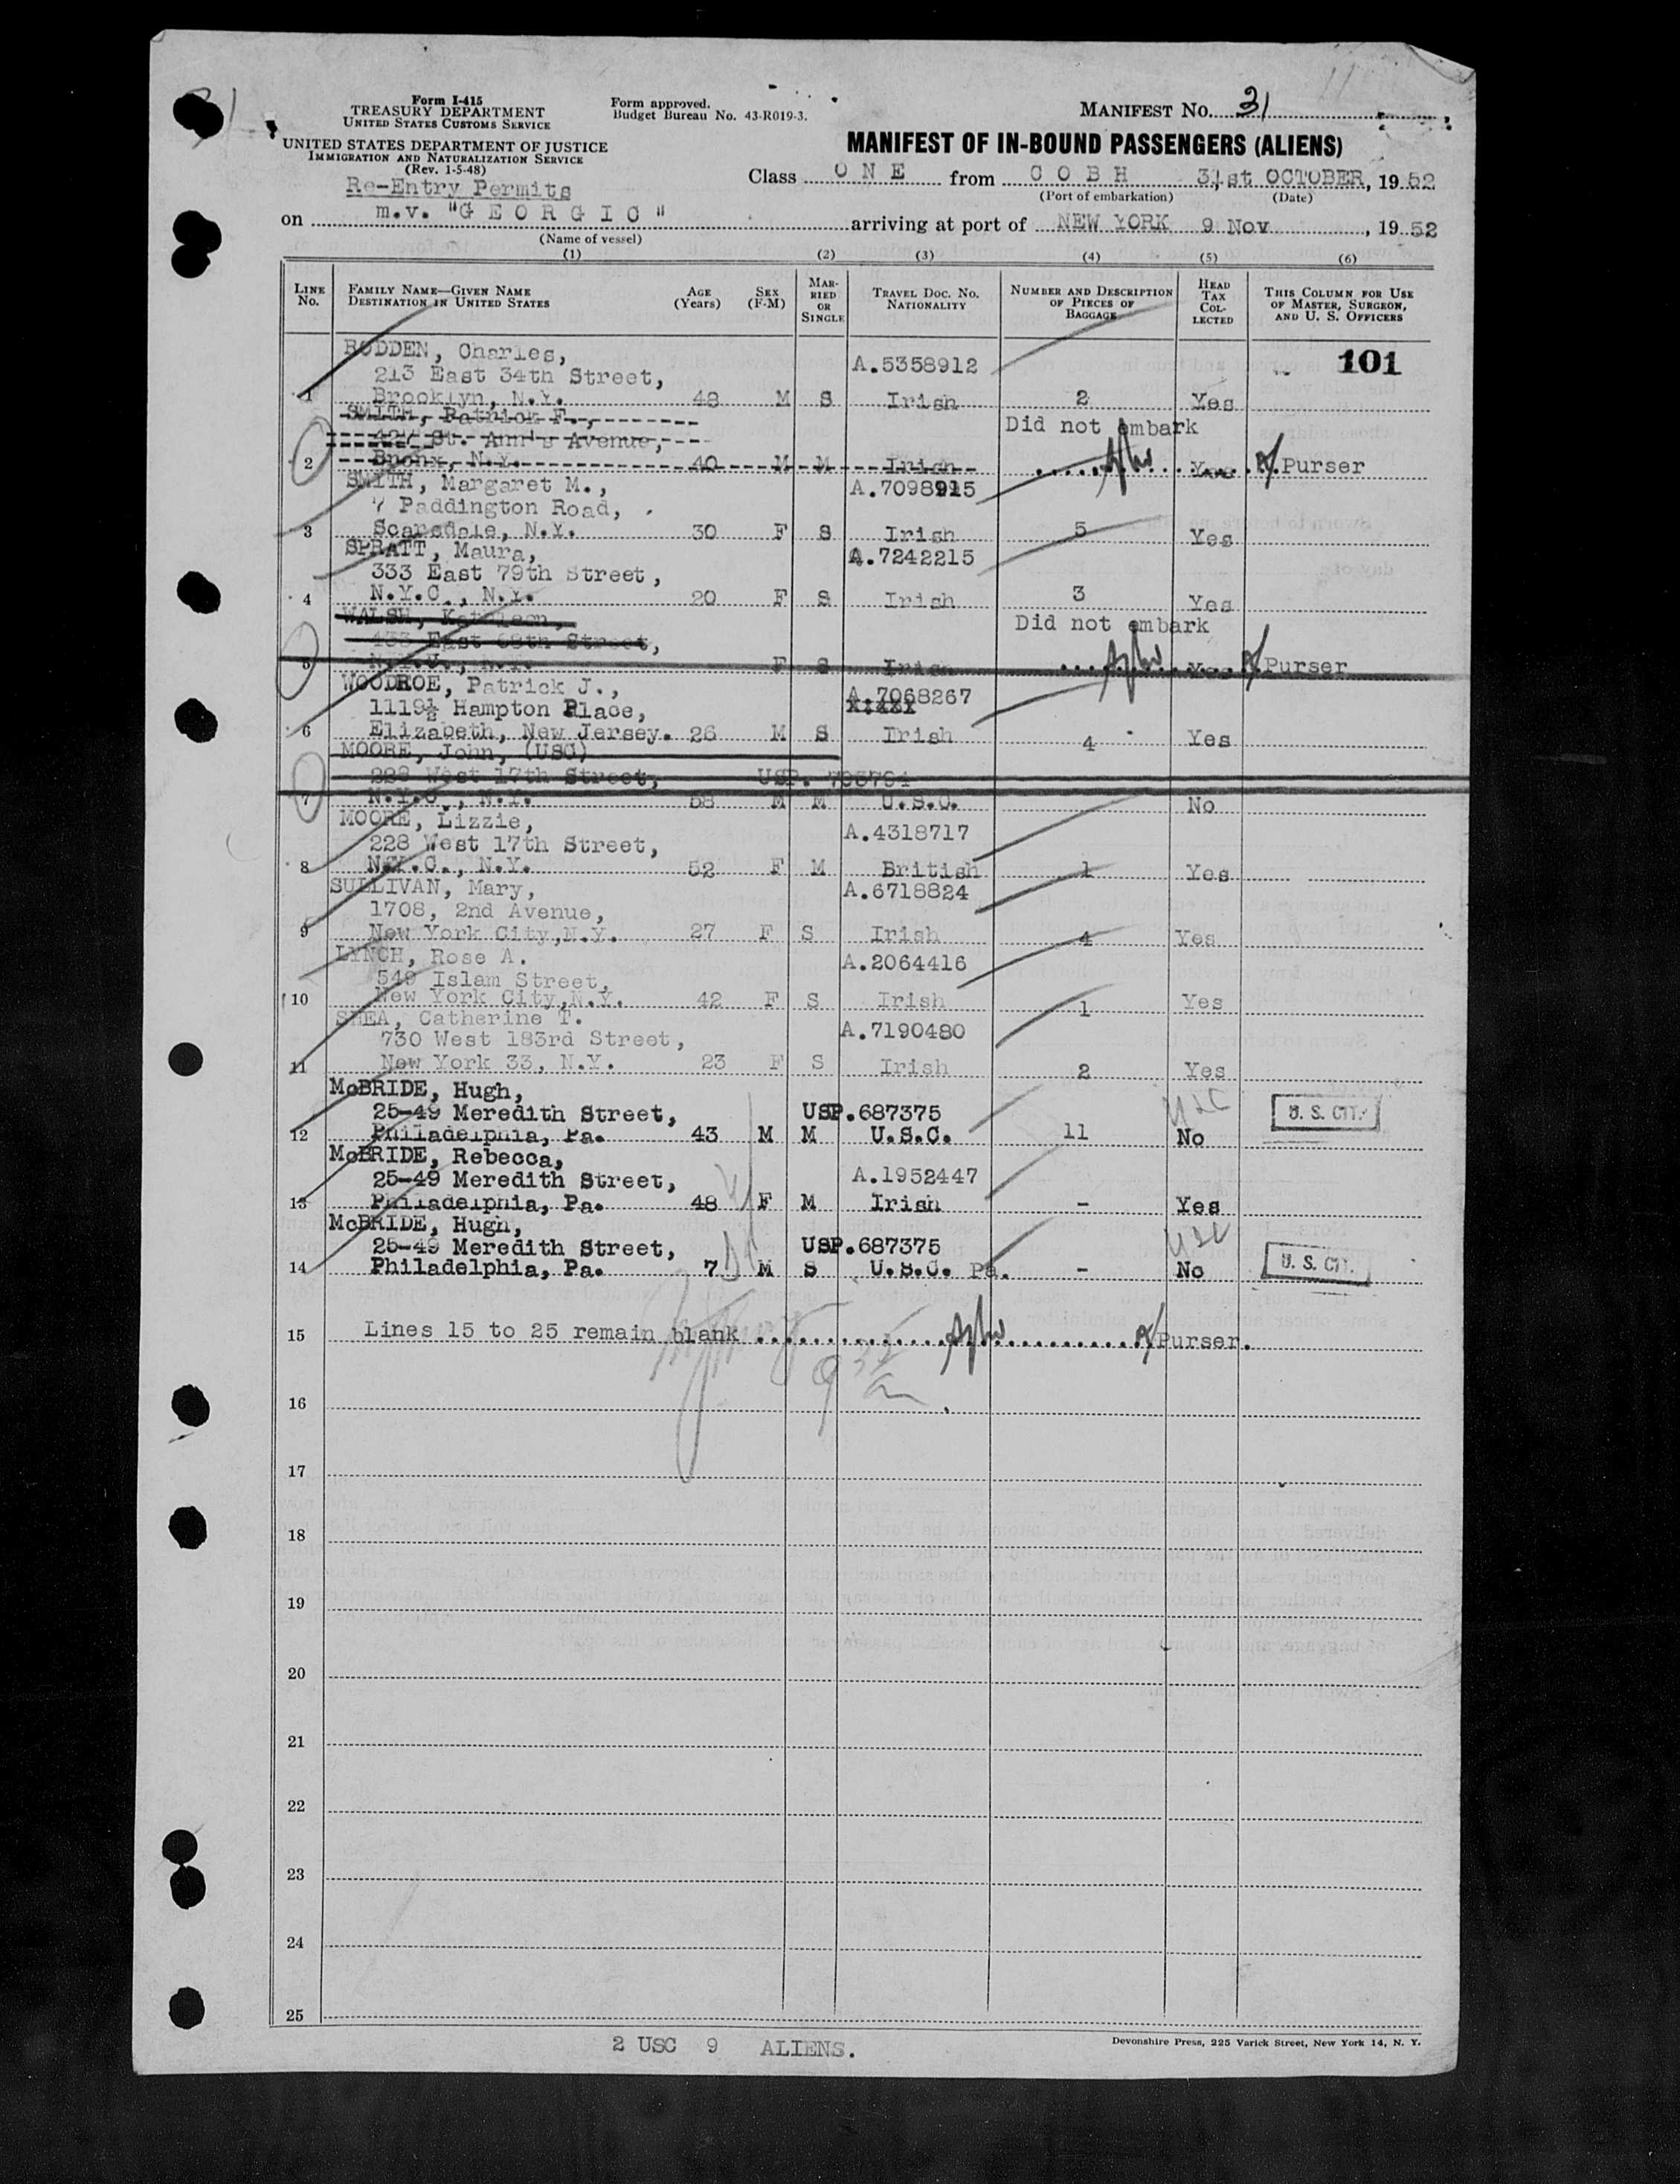 Form I-415
TREASURY DEPARTMENT
UNITED STATES CUSTOMS SERVICE
Form approved.
Budget Bureau No. 43-R019-3.
MANIFEST No. 31
UNITED STATES DEPARTMENT OF JUSTICE
IMMIGRATION AND NATURALIZATION SERVICE
(Rev. 1-5-48)
MANIFEST OF IN-BOUND PASSENGERS (ALIENS)
Re-Entry Permits
Class ONE from COBH 31st OCTOBER, 1952
(Port of embarkation) (Date)
on m.v. "GEORGIC" arriving at port of NEW YORK 9 Nov, 1952
(Name of vessel)
(1) (2) (3) (4) (5) (6)
LINE No. FAMILY NAME—GIVEN NAME DESTINATION IN UNITED STATES AGE (Years) SEX (F-M) MARRIED OR SINGLE TRAVEL DOC. No. NATIONALITY NUMBER AND DESCRIPTION OF PIECES OF BAGGAGE HEAD TAX COLLECTED THIS COLUMN FOR USE OF MASTER, SURGEON, AND U. S. OFFICERS
101
RODDEN, Charles, A.5358912
213 East 34th Street,
1 Brooklyn, N.Y. 48 M S Irish 2 Yes
SMITH, Patrick F., Did not embark
St. Ann's Avenue,
2 Bronx, N.Y. 40 M M Irish Yes Purser
SMITH, Margaret M., A.7098915
7 Paddington Road,
3 Scarsdale, N.Y. 30 F S Irish 5 Yes
SPRATT, Maura, A.7242215
333 East 79th Street,
4 N.Y.C., N.Y. 20 F S Irish 3 Yes
WALSH, Kathleen, Did not embark
East 69th Street,
5 N.Y.C., N.Y. F S Irish Yes Purser
WOODROE, Patrick J., A.7068267
1119½ Hampton Place,
6 Elizabeth, New Jersey. 26 M S Irish 4 Yes
MOORE, John, (USC)
228 West 17th Street, USP. 793794
7 N.Y.C., N.Y. 58 M M U.S.C. No
MOORE, Lizzie, A.4318717
228 West 17th Street,
8 N.Y.C., N.Y. 52 F M British 1 Yes
SULLIVAN, Mary, A.6718824
1708, 2nd Avenue,
9 New York City, N.Y. 27 F S Irish 4 Yes
LYNCH, Rose A. A.2064416
549 Islam Street,
10 New York City, N.Y. 42 F S Irish 1 Yes
SHEA, Catherine T. A.7190480
730 West 183rd Street,
11 New York 33, N.Y. 23 F S Irish 2 Yes
McBRIDE, Hugh,
25-49 Meredith Street, USP.687375 U. S. CIT.
12 Philadelphia, Pa. 43 M M U.S.C. 11 No
McBRIDE, Rebecca,
25-49 Meredith Street, A.1952447
13 Philadelphia, Pa. 48 F M Irish - Yes
McBRIDE, Hugh,
25-49 Meredith Street, USP.687375 U. S. CIT.
14 Philadelphia, Pa. 7 M S U.S.C. Pa. - No
15 Lines 15 to 25 remain blank Purser.
16
17
18
19
20
21
22
23
24
25
2 USC 9 ALIENS.
Devonshire Press, 225 Varick Street, New York 14, N. Y.